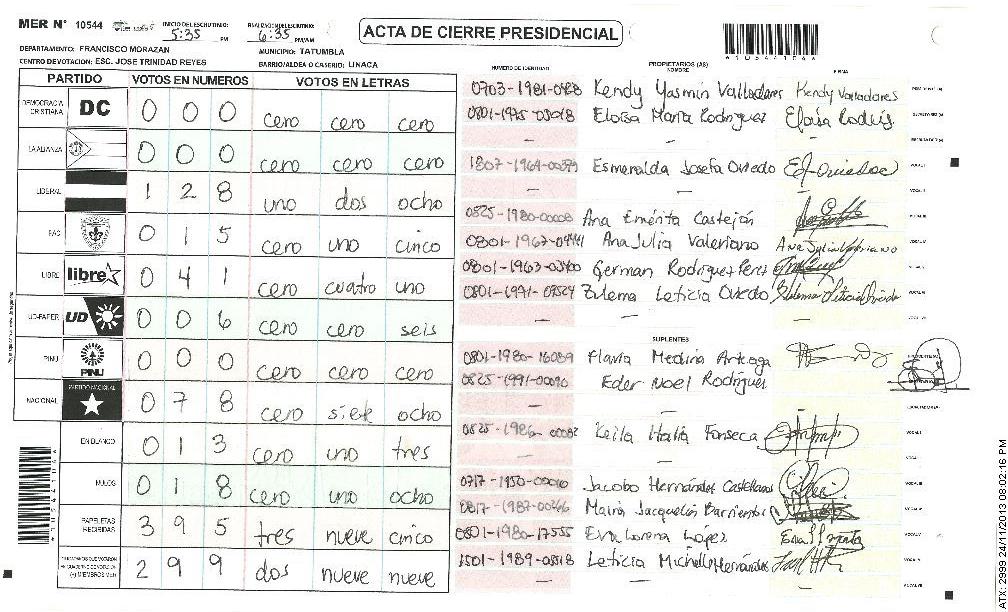 MER N° 10544
INICIO DEL ESCRUTINIO: 5:35 PM
FINALIZACION DEL ESCRUTINIO: 6:35 PM/AM
ACTA DE CIERRE PRESIDENCIAL
DEPARTAMENTO: FRANCISCO MORAZAN
MUNICIPIO: TATUMBLA
CENTRO DE VOTACION: ESC. JOSE TRINIDAD REYES
BARRIO/ALDEA O CASERIO: LINACA
PARTIDO VOTOS EN NUMEROS VOTOS EN LETRAS
DEMOCRACIA CRISTIANA DC 0 0 0 cero cero cero
LA ALIANZA 0 0 0 cero cero cero
LIBERAL 1 2 8 uno dos ocho
PAC 0 1 5 cero uno cinco
LIBRE libre 0 4 1 cero cuatro uno
UD-FAPER UD 0 0 6 cero cero seis
PINU PINU 0 0 0 cero cero cero
NACIONAL PARTIDO NACIONAL 0 7 8 cero siete ocho
EN BLANCO 0 1 3 cero uno tres
NULOS 0 1 8 cero uno ocho
PAPELETAS RECIBIDAS 3 9 5 tres nueve cinco
(+) MIEMBROS MER 2 9 9 dos nueve nueve
NUMERO DE IDENTIDAD PROPIETARIOS (AS) NOMBRE FIRMA
Kendy Yasmin Valladares Kendy Valladares
0801-1975-03018 Eloisa Maria Rodriguez
Esmeralda Josefa Oviedo
0825-1980-00008 Ana Emérita Castejón
Ana Julia Valeriano
German Rodriguez Perez
0801-1971-09524 Zulema Leticia Oviedo
SUPLENTES
0801-1980-16089 Flavia Medina Arteaga
0825-1991-00090 Eder Noel Rodriguez
0825-1986-00082 Keila Fonseca
Jacobo Hernández Castellanos
Barrientos
0801-1980-17555 Eva Lorena López
1501-1989-00518 Leticia Michelle Hernández
ATX: 2999 24/11/2013 08:02:16 PM